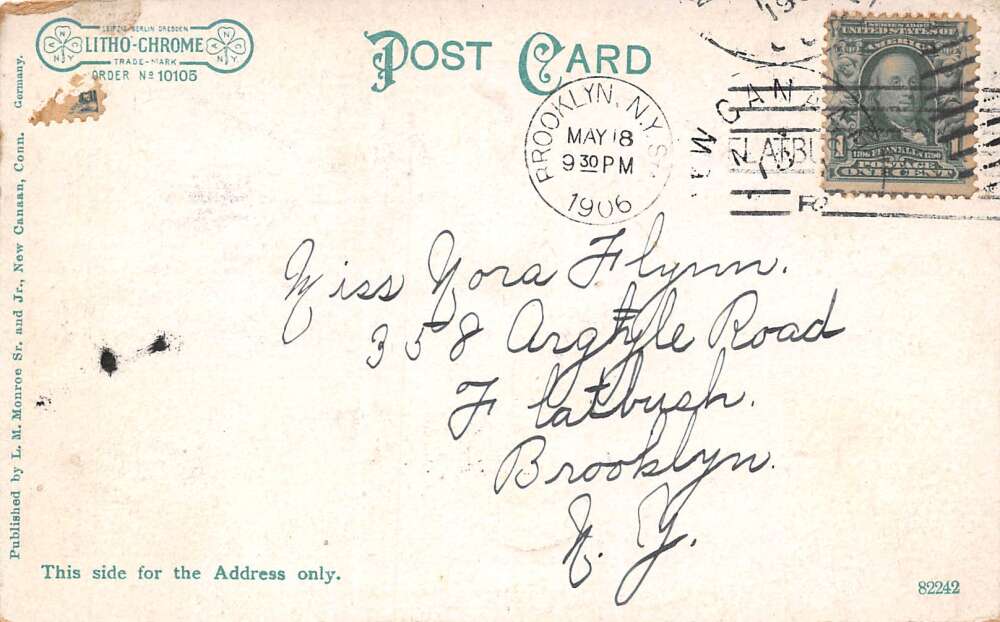 LEIPZIG-BERLIN DRESDEN
LITHO-CHROME
TRADE-MARK
ORDER Nº 10105
POST CARD
BROOKLYN, N.Y.
MAY 18
9 30 PM
1906
FLATBU
SERIES 1902
UNITED STATES OF
AMERICA
1790 FRANKLIN 1790
POSTAGE
ONE CENT
Miss Nora Flynn.
358 Argyle Road
Flatbush.
Brooklyn.
N. Y.
Published by L. M. Monroe Sr. and Jr., New Canaan, Conn. Germany.
This side for the Address only.
82242